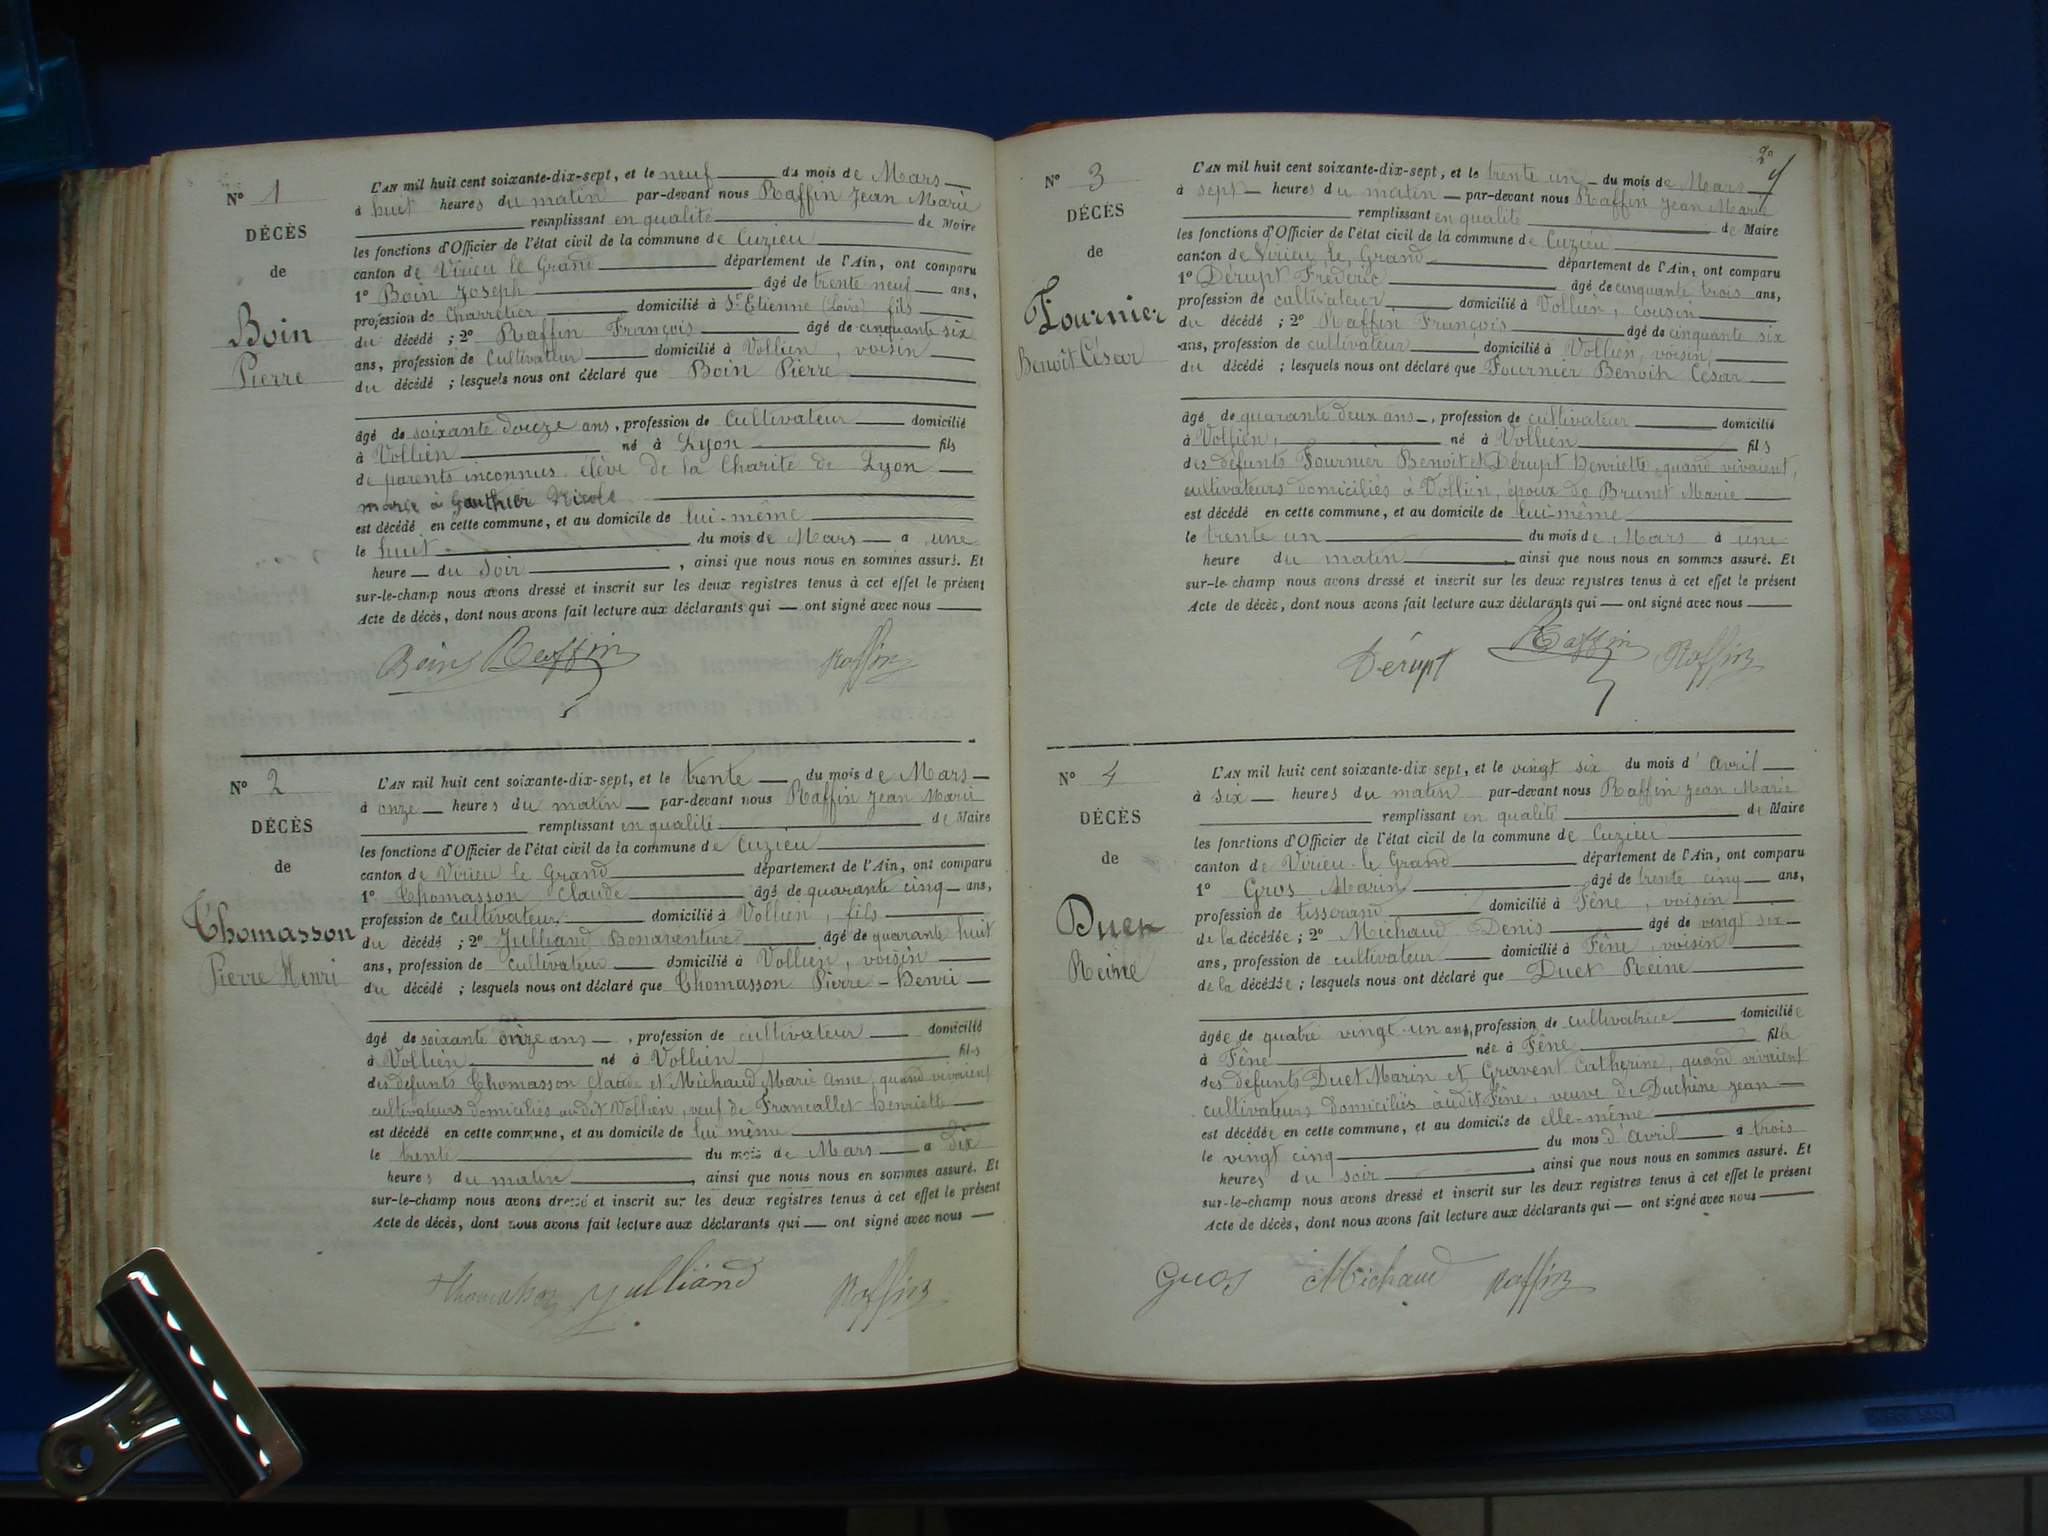 N° 1
DÉCÈS
de
Boin
Pierre
L'AN mil huit cent soixante-dix-sept, et le neuf du mois de Mars
à huit heures du matin par-devant nous Raffin Jean Marie
remplissant en qualité de Maire
les fonctions d'Officier de l'état civil de la commune de Cuzieu
canton de Virieu le Grand département de l'Ain, ont comparu
1° Boin Joseph âgé de trente neuf ans,
profession de Charretier domicilié à St Etienne (Loire) fils
du décédé ; 2° Raffin François âgé de cinquante six
ans, profession de Cultivateur domicilié à Vollien, voisin
du décédé ; lesquels nous ont déclaré que Boin Pierre
âgé de soixante douze ans, profession de Cultivateur domicilié
à Vollien né à Lyon fils
de parents inconnus élève de la Charité de Lyon
marié à Gauthier Nicole
est décédé en cette commune, et au domicile de lui-même
le huit du mois de Mars à une
heure du soir, ainsi que nous nous en sommes assuré. Et
sur-le-champ nous avons dressé et inscrit sur les deux registres tenus à cet effet le présent
Acte de décès, dont nous avons fait lecture aux déclarants qui ont signé avec nous
Boin Raffin Raffin
N° 2
DÉCÈS
de
Thomasson
Pierre Henri
L'AN mil huit cent soixante-dix-sept, et le trente du mois de Mars
à onze heures du matin par-devant nous Raffin Jean Marie
remplissant en qualité de Maire
les fonctions d'Officier de l'état civil de la commune de Cuzieu
canton de Virieu le Grand département de l'Ain, ont comparu
1° Thomasson Claude âgé de quarante cinq ans,
profession de cultivateur domicilié à Vollien, fils
du décédé ; 2° Julliand Bonaventure âgé de quarante huit
ans, profession de cultivateur domicilié à Vollien, voisin
du décédé ; lesquels nous ont déclaré que Thomasson Pierre-Henri
âgé de soixante onze ans, profession de cultivateur domicilié
à Vollien né à Vollien fils
des défunts Thomasson Claude et Michaud Marie Anne, quand vivaient
cultivateurs domiciliés audit Vollien, veuf de Francallet Henriette
est décédé en cette commune, et au domicile de lui même
le trente du mois de Mars à dix
heures du matin, ainsi que nous nous en sommes assuré. Et
sur-le-champ nous avons dressé et inscrit sur les deux registres tenus à cet effet le présent
Acte de décès, dont nous avons fait lecture aux déclarants qui ont signé avec nous
Thomasson Julliand Raffin
2e
N° 3
DÉCÈS
de
Fournier
Benoît César
L'AN mil huit cent soixante-dix-sept, et le trente un du mois de Mars
à sept heures du matin par-devant nous Raffin Jean Marie
remplissant en qualité de Maire
les fonctions d'Officier de l'état civil de la commune de Cuzieu
canton de Virieu le Grand département de l'Ain, ont comparu
1° Dérupt Fréderic âgé de cinquante trois ans,
profession de cultivateur domicilié à Vollien, cousin
du décédé ; 2° Raffin François âgé de cinquante six
ans, profession de cultivateur domicilié à Vollien, voisin
du décédé ; lesquels nous ont déclaré que Fournier Benoît César
âgé de quarante deux ans, profession de cultivateur domicilié
à Vollien, né à Vollien fils
des défunts Fournier Benoit et Dérupt Henriette, quand vivaient,
cultivateurs domiciliés à Vollien, époux de Brunet Marie
est décédé en cette commune, et au domicile de lui-même
le trente un du mois de Mars à une
heure du matin, ainsi que nous nous en sommes assuré. Et
sur-le-champ nous avons dressé et inscrit sur les deux registres tenus à cet effet le présent
Acte de décès, dont nous avons fait lecture aux déclarants qui ont signé avec nous
Dérupt Raffin Raffin
N° 4
DÉCÈS
de
Duet
Reine
L'AN mil huit cent soixante-dix sept, et le vingt six du mois d'avril
à six heures du matin par-devant nous Raffin Jean Marie
remplissant en qualité de Maire
les fonctions d'Officier de l'état civil de la commune de Cuzieu
canton de Virieu-le Grand département de l'Ain, ont comparu
1° Gros Marin âgé de trente cinq ans,
profession de tisserand domicilié à Fêne, voisin
de la décédée ; 2° Michaud Denis âgé de vingt six
ans, profession de cultivateur domicilié à Fêne, voisin
de la décédée ; lesquels nous ont déclaré que Duet Reine
âgée de quatre vingt-un ans, profession de cultivatrice domiciliée
à Fêne née à Fêne fille
des défunts Duet Marin et Gravent Catherine, quand vivaient
cultivateurs domiciliés audit Fêne, veuve de Duchêne Jean
est décédée en cette commune, et au domicile de elle-même
le vingt cinq du mois d'avril à trois
heures du soir, ainsi que nous nous en sommes assuré. Et
sur-le-champ nous avons dressé et inscrit sur les deux registres tenus à cet effet le présent
Acte de décès, dont nous avons fait lecture aux déclarants qui ont signé avec nous
Gros Michaud Raffin